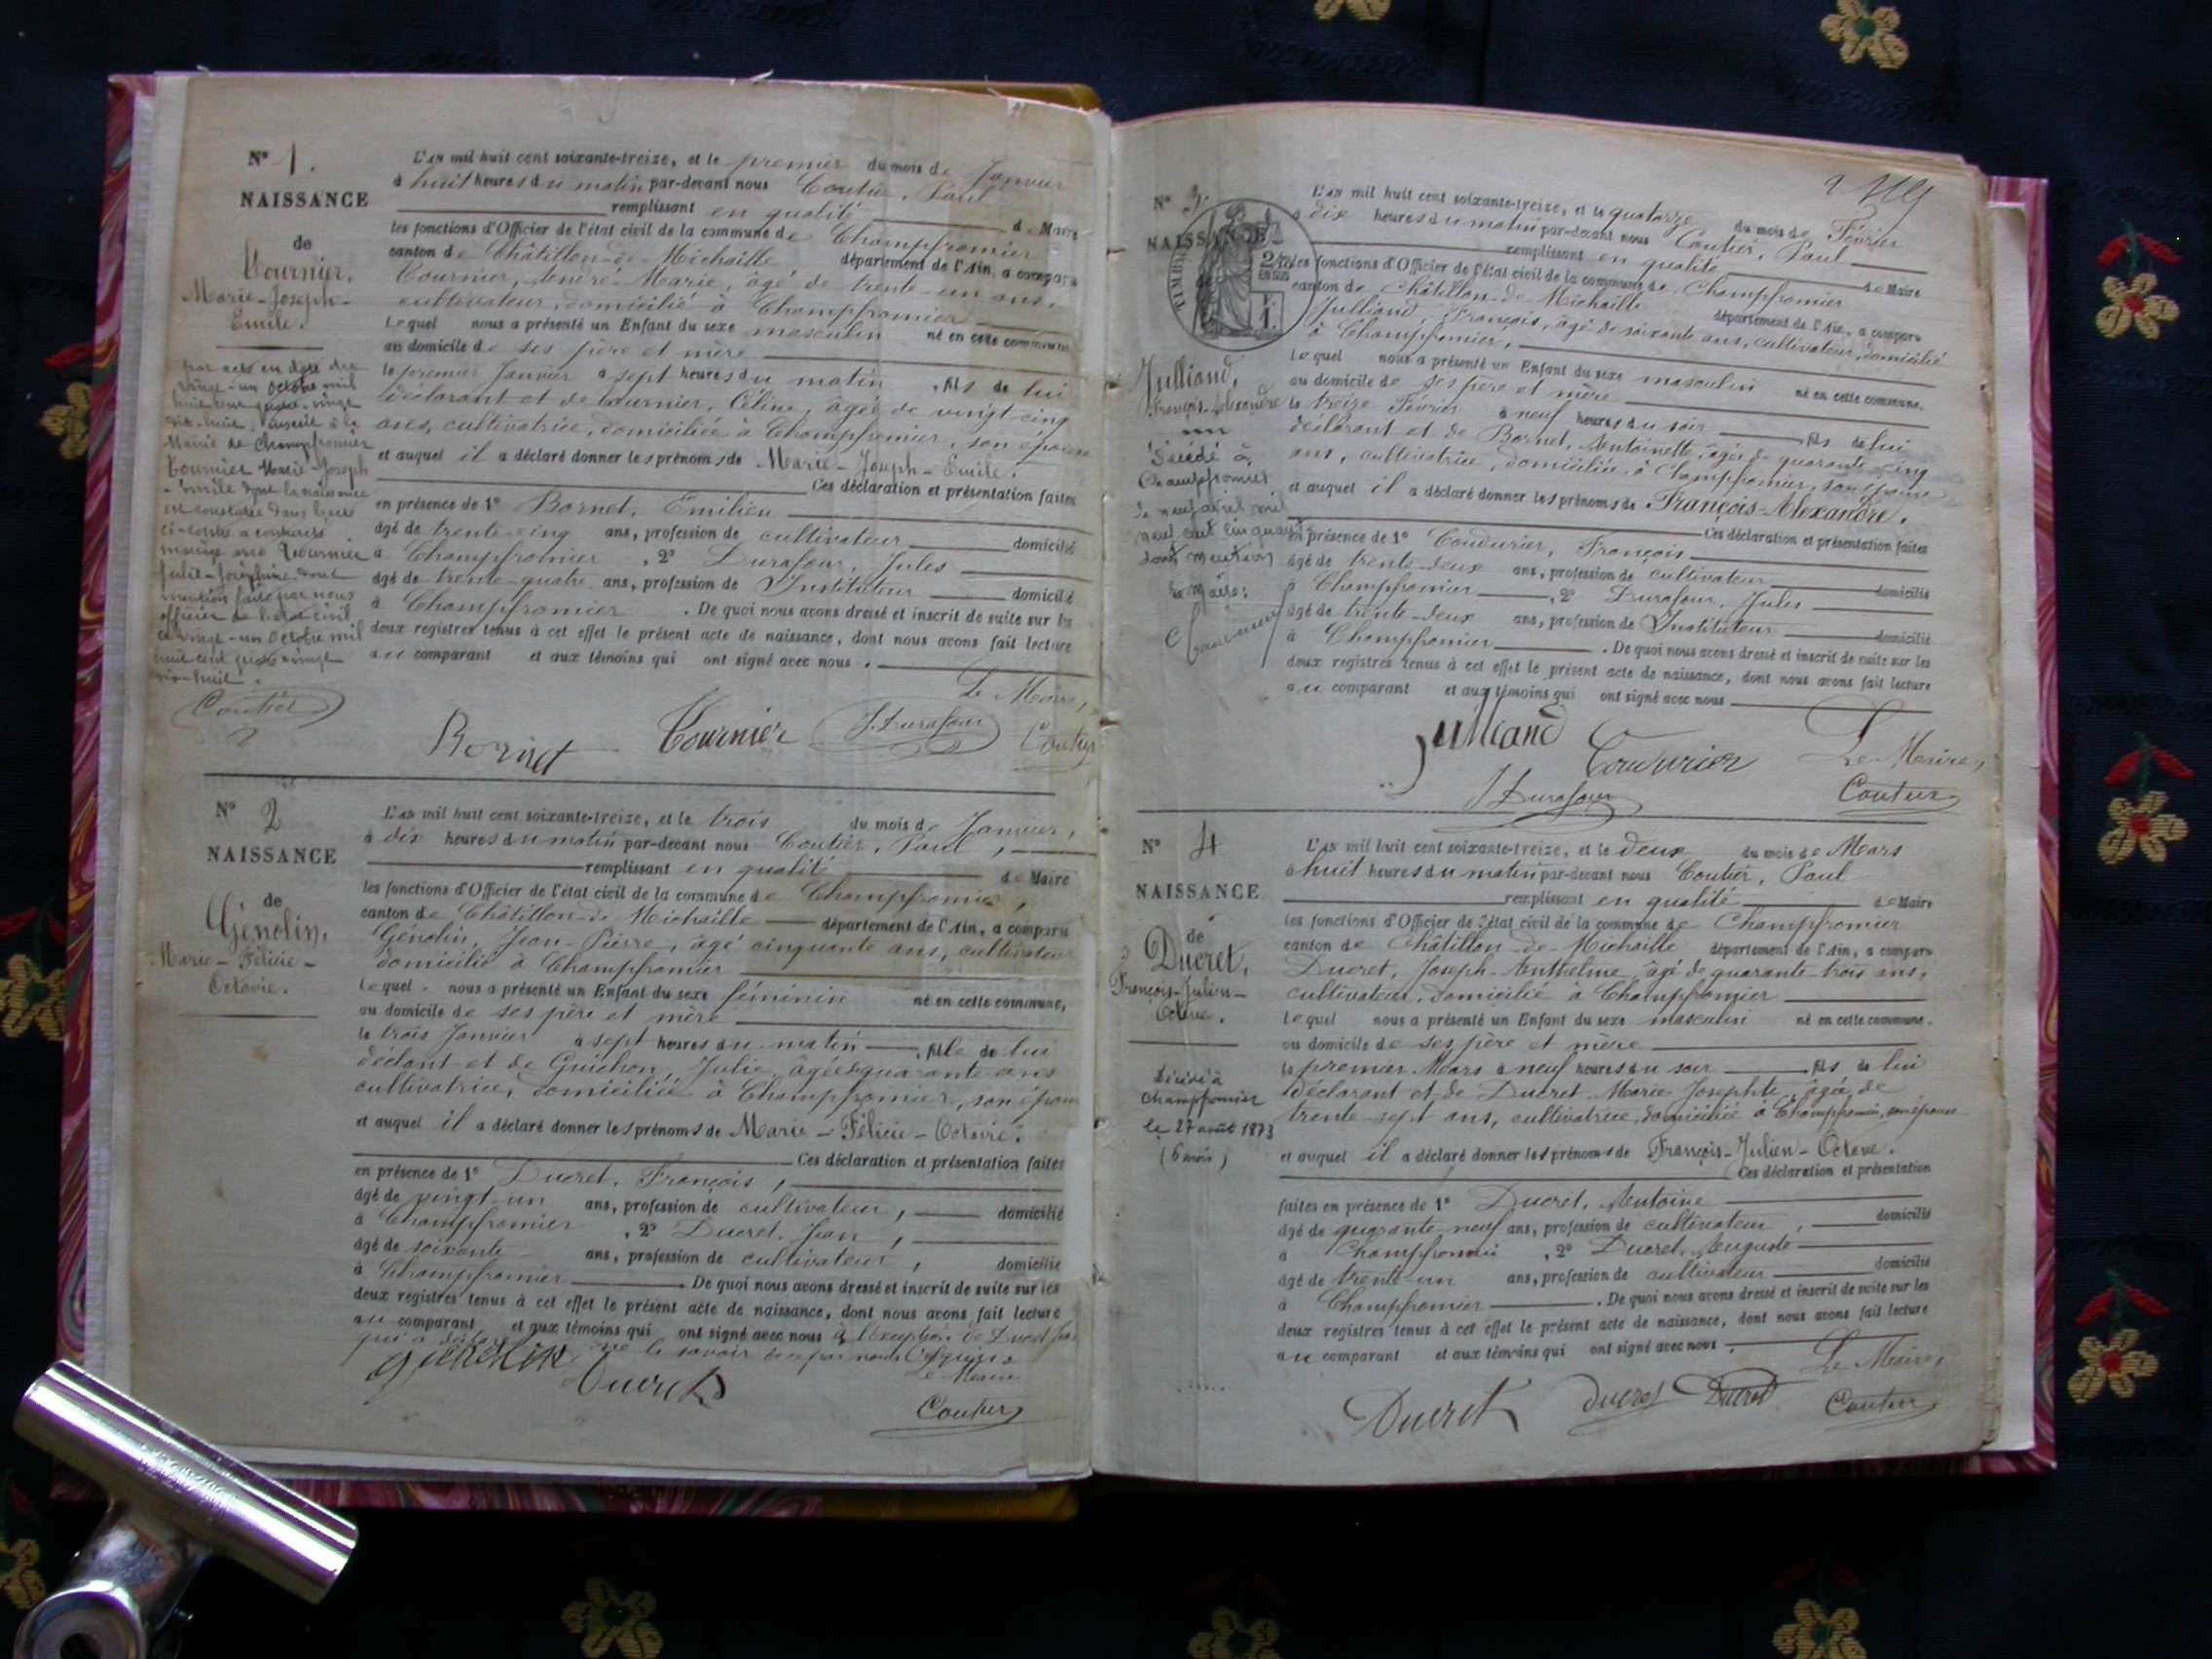 N° 1.
NAISSANCE
de
Tournier,
Marie-Joseph-
Emile.
par acte en date du
vingt-un octobre mil
huit cent quatre-vingt
dix-huit, à la
Mairie de Champfromier
Tournier Marie-Joseph
-Emile dont la naissance
est constatée dans l'acte
ci-contre a contracté
mariage avec Tournier
Julie-Joséphine dont
mention faite par nous
officier de l'état civil
le vingt-un Octobre mil
huit cent quatre-vingt
dix-huit.
Coutier
L'an mil huit cent soixante-treize, et le premier du mois de Janvier
à huit heures du matin par-devant nous Coutier, Paul
remplissant en qualité de Maire
les fonctions d'Officier de l'état civil de la commune de Champfromier
canton de Châtillon-de-Michaille département de l'Ain, a comparu
Tournier, André-Marie, âgé de trente-un ans,
cultivateur, domicilié à Champfromier
Lequel nous a présenté un Enfant du sexe masculin né en cette commune
au domicile de ses père et mère
le premier Janvier à sept heures du matin, fils de lui
déclarant et de Tournier, Céline, âgée de vingt-cinq
ans, cultivatrice, domiciliée à Champfromier, son épouse
et auquel il a déclaré donner les prénoms de Marie-Joseph-Emile.
Ces déclaration et présentation faites
en présence de 1° Bornet, Emilien
âgé de trente-cinq ans, profession de cultivateur domicilié
à Champfromier, 2° Durafour, Jules
âgé de trente-quatre ans, profession de Instituteur domicilié
à Champfromier. De quoi nous avons dressé et inscrit de suite sur les
deux registres tenus à cet effet le présent acte de naissance, dont nous avons fait lecture
au comparant et aux témoins qui ont signé avec nous.
Le Maire,
Bornet Tournier J. Durafour Coutier
N° 2
NAISSANCE
de
Génolin,
Marie-Félicie-
Octavie.
L'an mil huit cent soixante-treize, et le trois du mois de Janvier,
à dix heures du matin par-devant nous Coutier, Paul,
remplissant en qualité de Maire
les fonctions d'Officier de l'état civil de la commune de Champfromier,
canton de Châtillon-de-Michaille département de l'Ain, a comparu
Génolin, Jean-Pierre, âgé cinquante ans, cultivateur
domicilié à Champfromier
Lequel nous a présenté un Enfant du sexe féminin né en cette commune,
au domicile de ses père et mère
le trois Janvier à sept heures du matin, fille de lui
déclant et de Guichon, Julie, âgée de quarante ans
cultivatrice, domiciliée à Champfromier, son épouse
et auquel il a déclaré donner les prénoms de Marie-Félicie-Octavie.
Ces déclaration et présentation faites
en présence de 1° Ducret, François,
âgé de vingt-un ans, profession de cultivateur, domicilié
à Champfromier, 2° Ducret, Jean,
âgé de soixante ans, profession de cultivateur, domicilié
à Champfromier. De quoi nous avons dressé et inscrit de suite sur les
deux registres tenus à cet effet le présent acte de naissance, dont nous avons fait lecture
au comparant et aux témoins qui ont signé avec nous à l'exception de Ducret Jean
qui a déclaré ne le savoir de ce par nous requis.
Le Maire
Génolin Ducret
Coutier
N° 3.
NAISSANCE
de
TIMBRE
2/10
EN SUS
F.
1.
Julliand,
François-Alexandre
Décédé à
Champfromier
le neuf avril mil
neuf cent cinquante
dont mention
Le Maire:
L'an mil huit cent soixante-treize, et le quatorze du mois de Février
à dix heures du matin par-devant nous Coutier, Paul
remplissant en qualité de Maire
les fonctions d'Officier de l'état civil de la commune de Champfromier
canton de Châtillon-de-Michaille département de l'Ain, a comparu
Julliand, François, âgé de soixante ans, cultivateur, domicilié
à Champfromier,
Lequel nous a présenté un Enfant du sexe masculin né en cette commune,
au domicile de ses père et mère
le treize Février à neuf heures du soir, fils de lui
déclarant et de Bornet, Antoinette, âgée de quarante-cinq
ans, cultivatrice, domiciliée à Champfromier, son épouse
et auquel il a déclaré donner les prénoms de François-Alexandre.
Ces déclaration et présentation faites
en présence de 1° Coudurier, François
âgé de trente-deux ans, profession de cultivateur domicilié
à Champfromier, 2° Durafour, Jules
âgé de trente-deux ans, profession de Instituteur domicilié
à Champfromier. De quoi nous avons dressé et inscrit de suite sur les
deux registres tenus à cet effet le présent acte de naissance, dont nous avons fait lecture
au comparant et aux témoins qui ont signé avec nous
Julliand Coudurier Le Maire,
J Durafour Coutier
N° 4
NAISSANCE
de
Ducret,
François-Julien-
Octave.
Décédé à
Champfromier
le 27 août 1873
(6 mois)
L'an mil huit cent soixante-treize, et le deux du mois de Mars
à huit heures du matin par-devant nous Coutier, Paul
remplissant en qualité de Maire
les fonctions d'Officier de l'état civil de la commune de Champfromier
canton de Châtillon-de-Michaille département de l'Ain, a comparu
Ducret, Joseph-Anthelme, âgé de quarante-trois ans,
cultivateur, domicilié à Champfromier
Lequel nous a présenté un Enfant du sexe masculin né en cette commune.
au domicile de ses père et mère
le premier Mars à neuf heures du soir, fils de lui
déclarant et de Ducret Marie-Josephte, âgée de
trente-sept ans, cultivatrice, domiciliée à Champfromier, son épouse
et auquel il a déclaré donner les prénoms de François-Julien-Octave.
Ces déclaration et présentation
faites en présence de 1° Ducret, Antoine
âgé de quarante-neuf ans, profession de cultivateur, domicilié
à Champfromier, 2° Ducret, Auguste
âgé de trente-un ans, profession de cultivateur domicilié
à Champfromier. De quoi nous avons dressé et inscrit de suite sur les
deux registres tenus à cet effet le présent acte de naissance, dont nous avons fait lecture
au comparant et aux témoins qui ont signé avec nous.
Le Maire,
Ducret Ducret Ducret Coutier